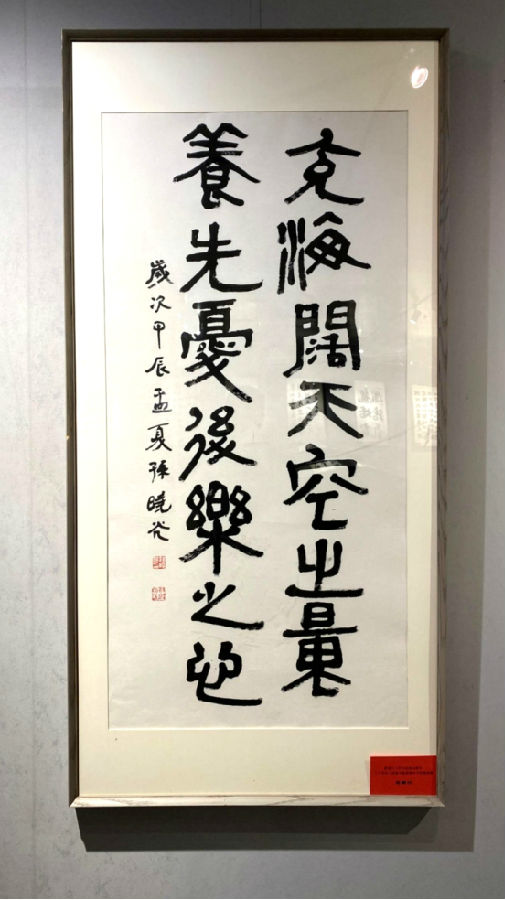 充海闊天空之量
養先憂後樂之心
歲次甲辰孟夏孫曉光